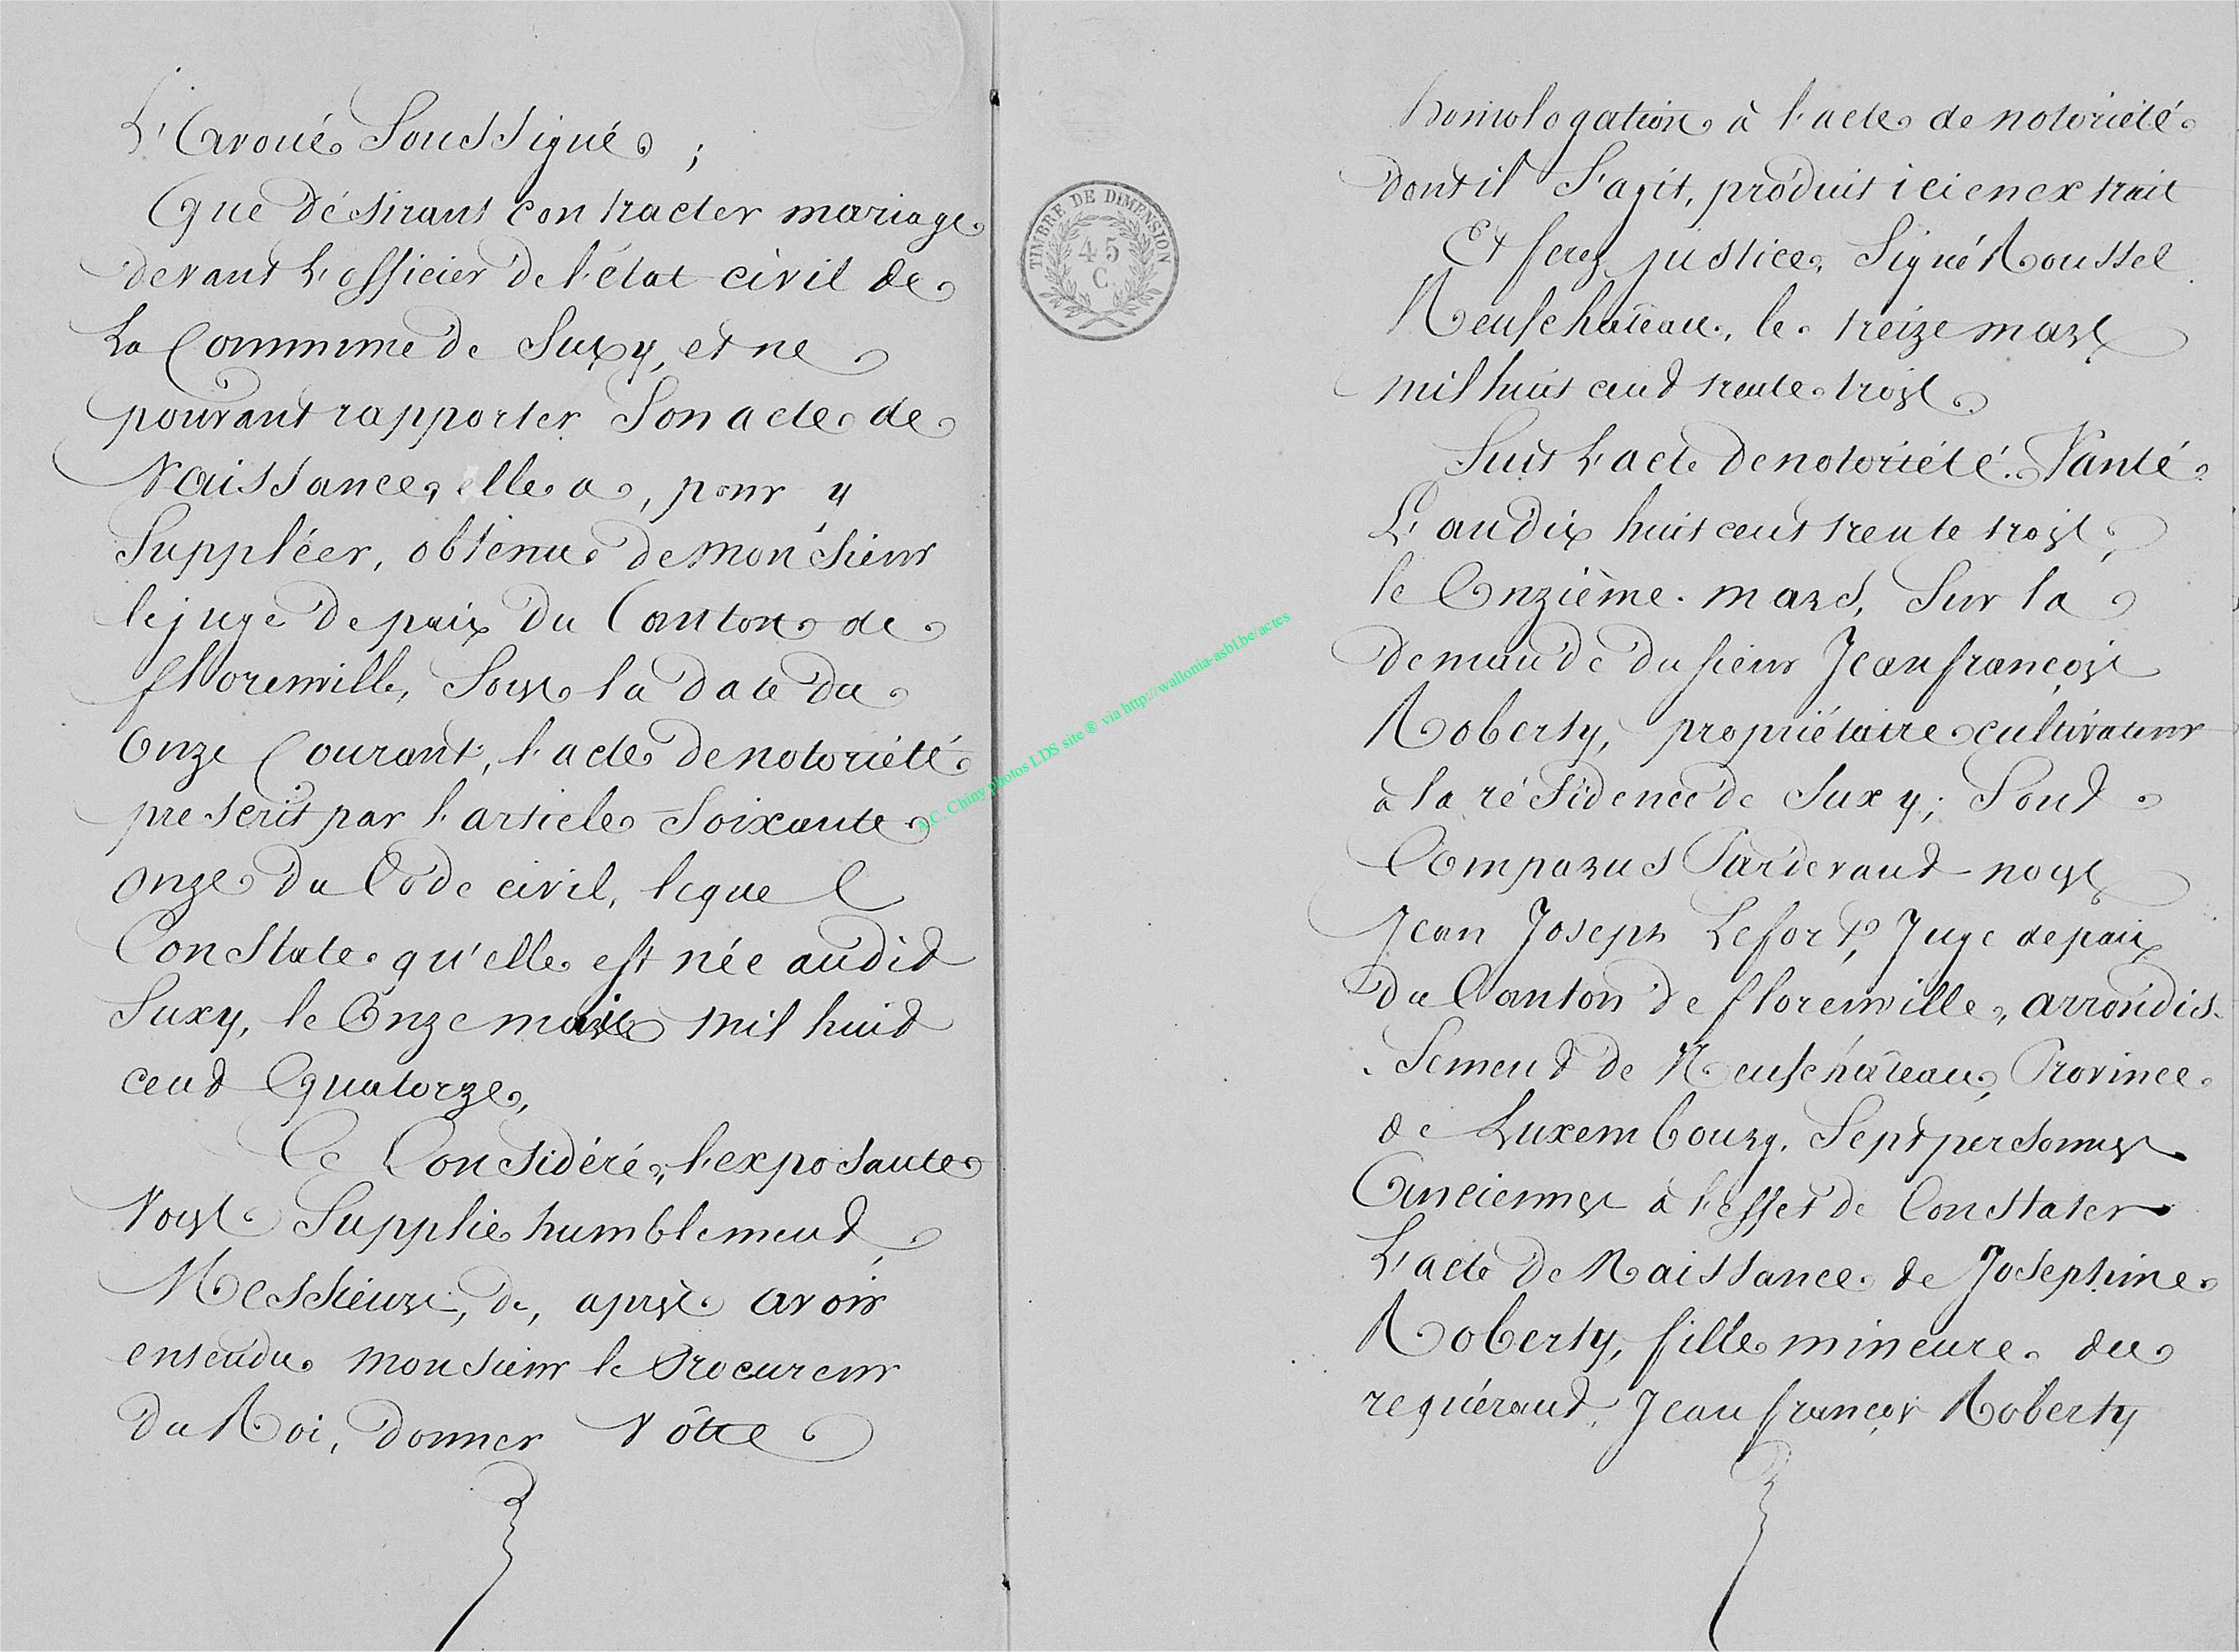 L'avoué Soussigné ;
Que désirant contracter mariage
devant l'officier de l'état civil de
la Commune de Suxy, et ne
pouvant rapporter Son acte de
Naissance, elle a, pour y
Suppléer, obtenu de monsieur
le juge de paix du Canton de
florenville, Sous la date du
Onze Courant, l'acte de notoriété
prescrit par l'article Soixante
onze du Code civil, lequel
Constate qu'elle est née audit
Suxy, le Onze mil huit
cent Quatorze,
Ce Considéré, l'exposante
Vous Supplie humblement,
Messieurs, de, après avoir
entendu monsieur le Procureur
du Roi, donner Vôtre
TIMBRE DE DIMENSION
45
C.
A.C. Chiny photos LDS site ® via http://wallonia-asbl.be/actes
homologation à l'acte de notoriété
dont il S'agit, produit ici en extrait
Et ferez justice, Signé Roussel
Neufchâteau, le treize mars
mil huit cent trente trois
Suit l'acte de notoriété Vanté
L'an dix huit cent trente trois,
le Onzième mars, Sur la
demande du sieur Jean françois
Roberty, propriétaire cultivateur
à la résidence de Suxy ; Sont
Comparus Pardevant nous
Jean Joseph Lefort, Juge de paix
du Canton de florenville, arrondis-
sement de Neufchâteau, Province
de Luxembourg, Sept personnes
Anciennes à l'effet de Constater
L'acte de Naissance de Josephine
Roberty, fille mineure du
requérant, Jean françois Roberty